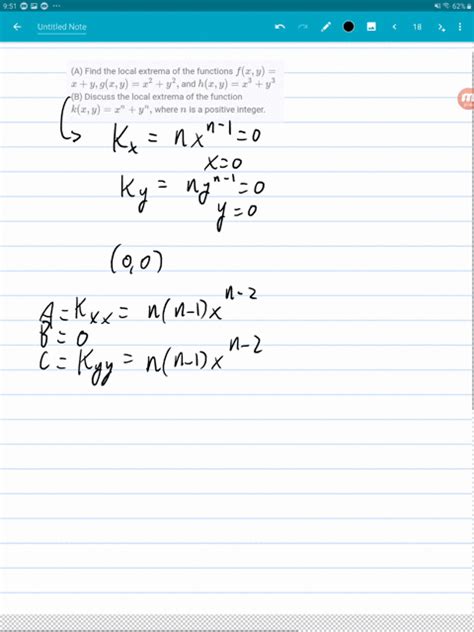 9:51
62%
Untitled Note
18
(A) Find the local extrema of the functions f(x, y) =
x + y, g(x, y) = x² + y², and h(x, y) = x³ + y³
(B) Discuss the local extrema of the function
k(x, y) = xⁿ + yⁿ, where n is a positive integer.
Kₓ = nxⁿ⁻¹ = 0
x = 0
Ky = nyⁿ⁻¹ = 0
y = 0
(0,0)
A = Kₓₓ = n(n-1)xⁿ⁻²
B = 0
C = Kyy = n(n-1)xⁿ⁻²